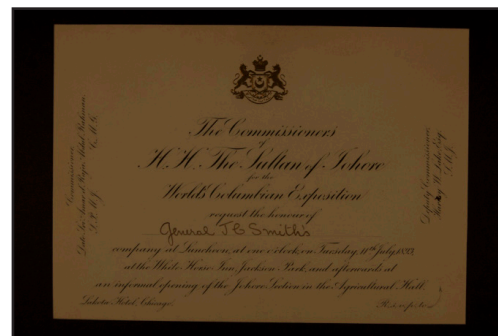 The Commissioners
of
H.H. The Sultan of Johore
for the
World's Columbian Exposition
request the honour of
General J C Smith's
company at Luncheon, at one o'clock, on Tuesday, 11th July 1893,
at the White House Inn, Jackson Park, and afterwards at
an informal opening of the Johore Section in the Agricultural Hall.
Lakota Hotel, Chicago.
Commissioner,
Dato Sri Amar d'Raja Abdul Rahman,
C.M.G.
Deputy Commissioner,